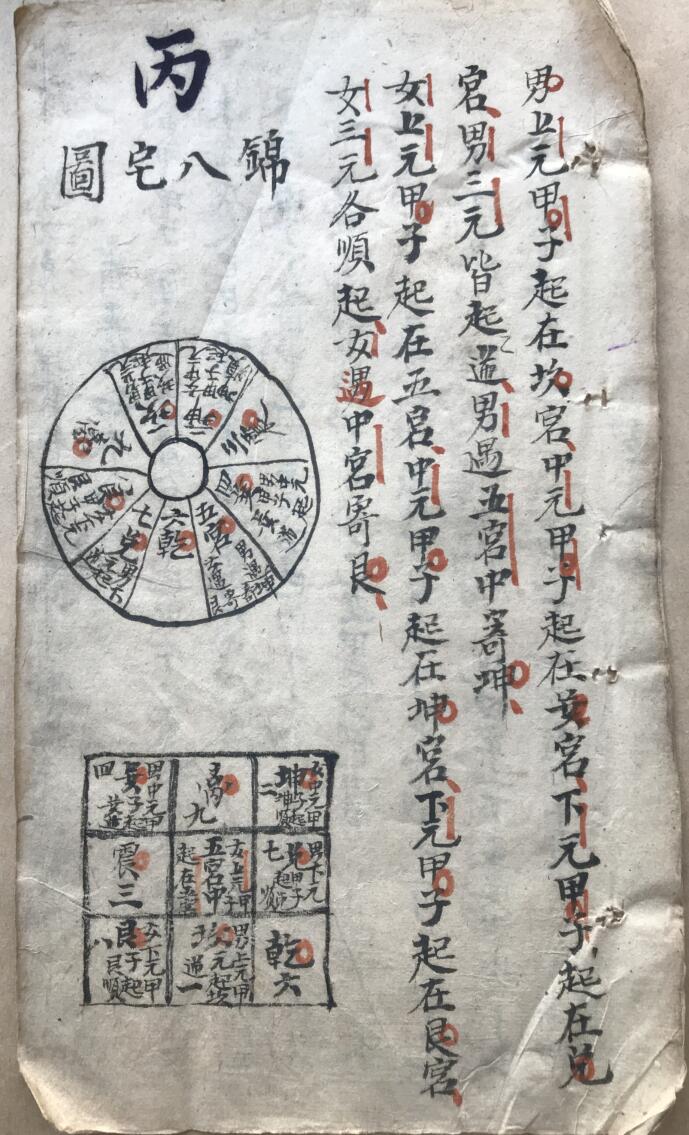 男上元甲子起在坎宮中元甲子起在巽宮下元甲子起在兌
宮男三元皆起逆男遇五宮中寄坤
女上元甲子起在五宮中元甲子起在坤宮下元甲子起在艮宮
女三元各順起女遇中宮寄艮
丙
錦八宅圖
五宮
男遇寄坤
女遇寄艮
六乾
七兌
坤二
女中元甲子起坤順
離九
巽四
男中元甲子起
兌七
男下元甲子起
五宮中
女上元甲子起在五宮
震三
乾六
坎一
男上元甲子起坎逆
艮八
女下元甲子起艮順